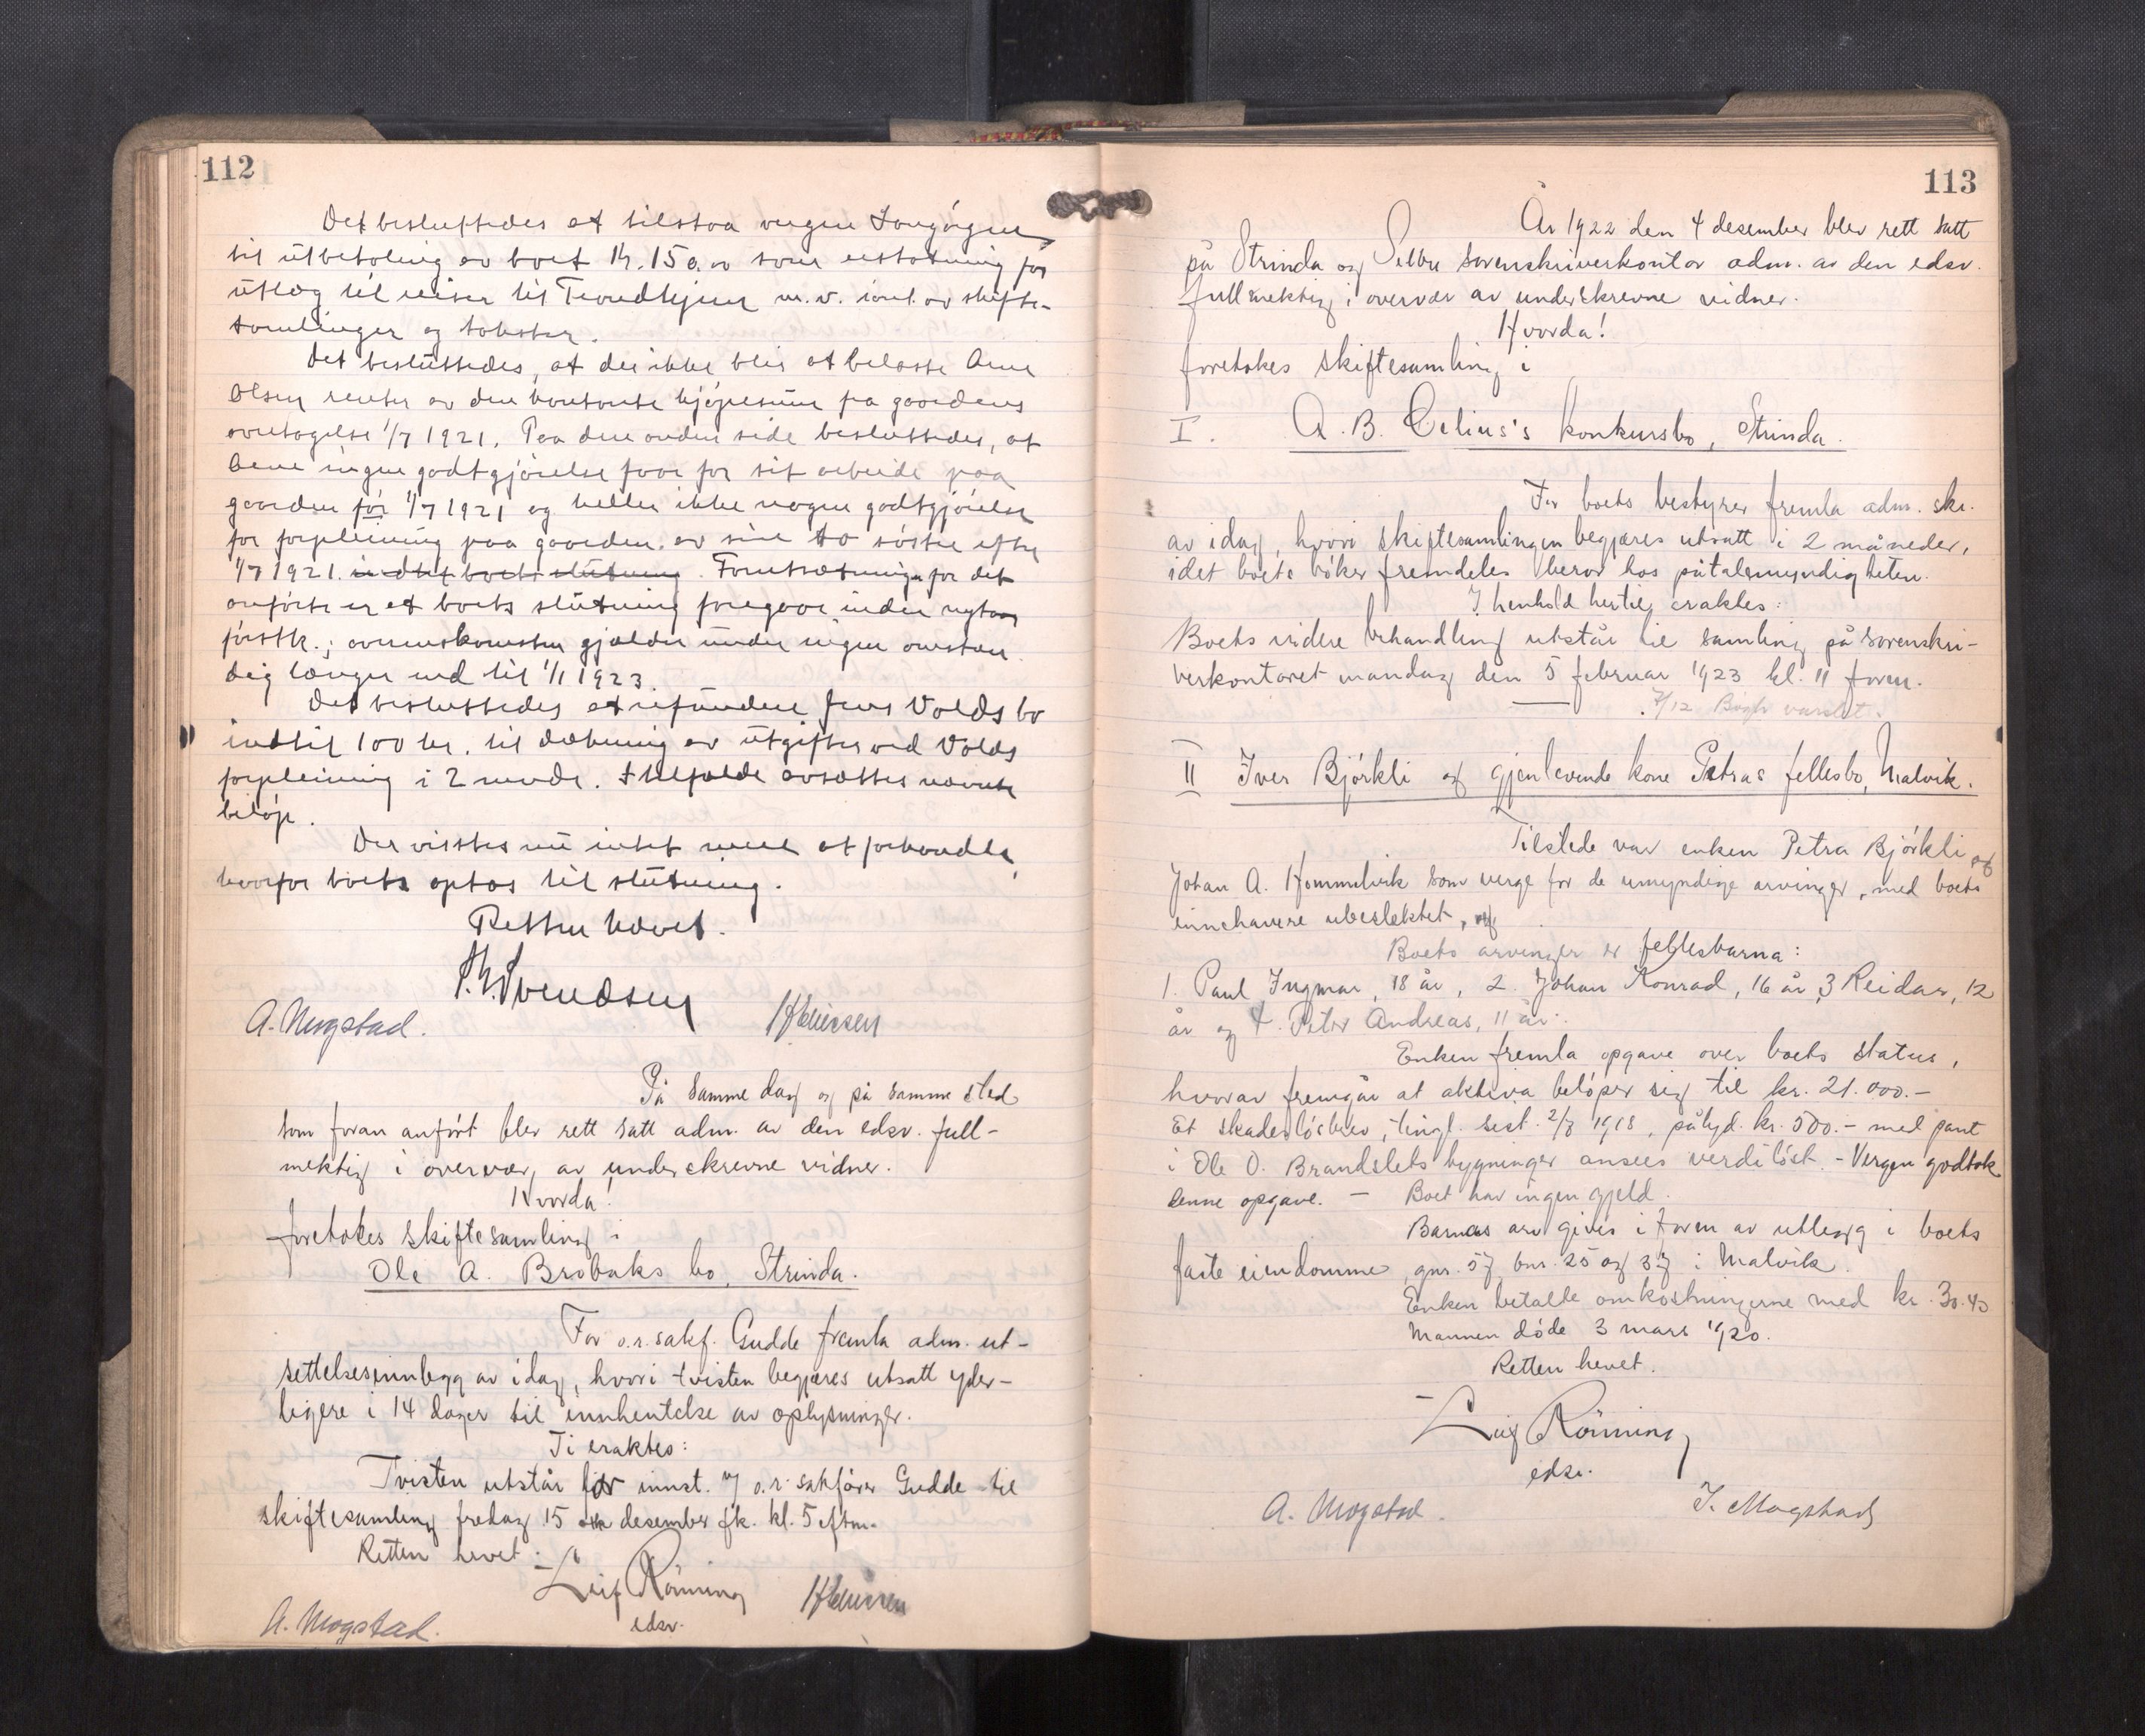 112
Det besluttedes at tilstaa vergen
til utbetaling av boet Kr. 150.00 som erstatning for
utlæg til reiser til Trondhjem m.v. iant. av skifte-
samlinger og takster.
Det besluttedes, at der ikke blir at belaste Arne
Olsen renter av den kontante kjøpesum fra gaardens
overtagelse 1/7 1921. Paa den anden side besluttedes, at
Arne ingen godtgjørelse faar for sit arbeide paa
gaarden før 1/7 1921 og heller ikke nogen godtgjørelse
for forpleining paa gaarden av sine to søstre efter
1/7 1921 indtil boets slutning. Forutsætningen for det
anførte er at boets slutning foregaar inden nytaar
førstk.; overenskomsten gjælder under ingen omstæn
dig længer end til 1/1 1923.
Det besluttedes at refundere Jens Volds bo
indtil 100 kr. til dækning av utgifter ved Volds
forpleining i 2 mndr. I tilfælde avsættes nævnte
beløp.
Der visstes nu intet mere at forhandle,
hvorfor boets optas til slutning.
Retten hævet.
Svendsen
A. Mogstad.
På samme dag og på samme sted
som foran anført blev rett satt adm. av den edsv. full-
mektig i overvær av underskrevne vidner.
Hvorda!
foretokes skiftesamling i
Ole A. Brobaks bo, Strinda.
For o.r.sakf. Gudde fremla adm. ut-
settelsesinnlegg av idag, hvori tvisten begjæres utsatt yder-
ligere i 14 dager til innhentelse av oplysninger.
Ti eraktes:
Tvisten utstår for innst. av o.r. sakfører Gudde til
skiftesamling fredag 15 desember fk. kl. 5 eftm.
Retten hevet.
Leif Rønning
edsv.
A. Mogstad.
113
År 1922 den 4 desember blev rett satt
på Strinda og Selbu sorenskriverkontor adm. av den edsv.
fullmektig i overvær av underskrevne vidner.
Hvorda!
foretokes skiftesamling i
I. A. B. Celius's konkursbo, Strinda.
For boets bestyrer fremla adm. skr.
av idag, hvori skiftesamlingen begjæres utsatt i 2 måneder,
idet boets bøker fremdeles beror hos påtalemyndigheten.
I henhold hertil eraktes:
Boets videre behandling utstår til samling på sorenskri-
verkontoret mandag den 5 februar 1923 kl. 11 form.
7/12 varslet.
II Iver Bjørkli og gjenlevende kone Petras fellesbo, Malvik.
Tilstede var enken Petra Bjørkli og
Johan A. Hommelvik som verge for de umyndige arvinger, med boets
innehavere ubeslektet, og
Boets arvinger er fellesbarna:
1. Paul Ingmar, 18 år, 2. Johan Konrad, 16 år, 3 Reidar, 12
år og 4. Peter Andreas, 11 år.
Enken fremla opgave over boets status,
hvorav fremgår at aktiva beløper sig til kr. 21.000.-
Et skadesløsbrev, tingl. sest. 2/7 1918, pålyd. kr. 500.- med pant
i Ole O. Brandslets bygninger ansees verdiløst. - Vergen godtok
denne opgave. - Boet har ingen gjeld.
Barnas arv gives i form av utlegg i boets
faste eiendomme, gnr. 57 bnr. 25 og 37 i Malvik.
Enken betalte omkostningerne med kr. 30.40
Mannen døde 3 mars 1920.
Retten hevet.
Leif Rønning
edsv.
A. Mogstad.
J. Mogstad